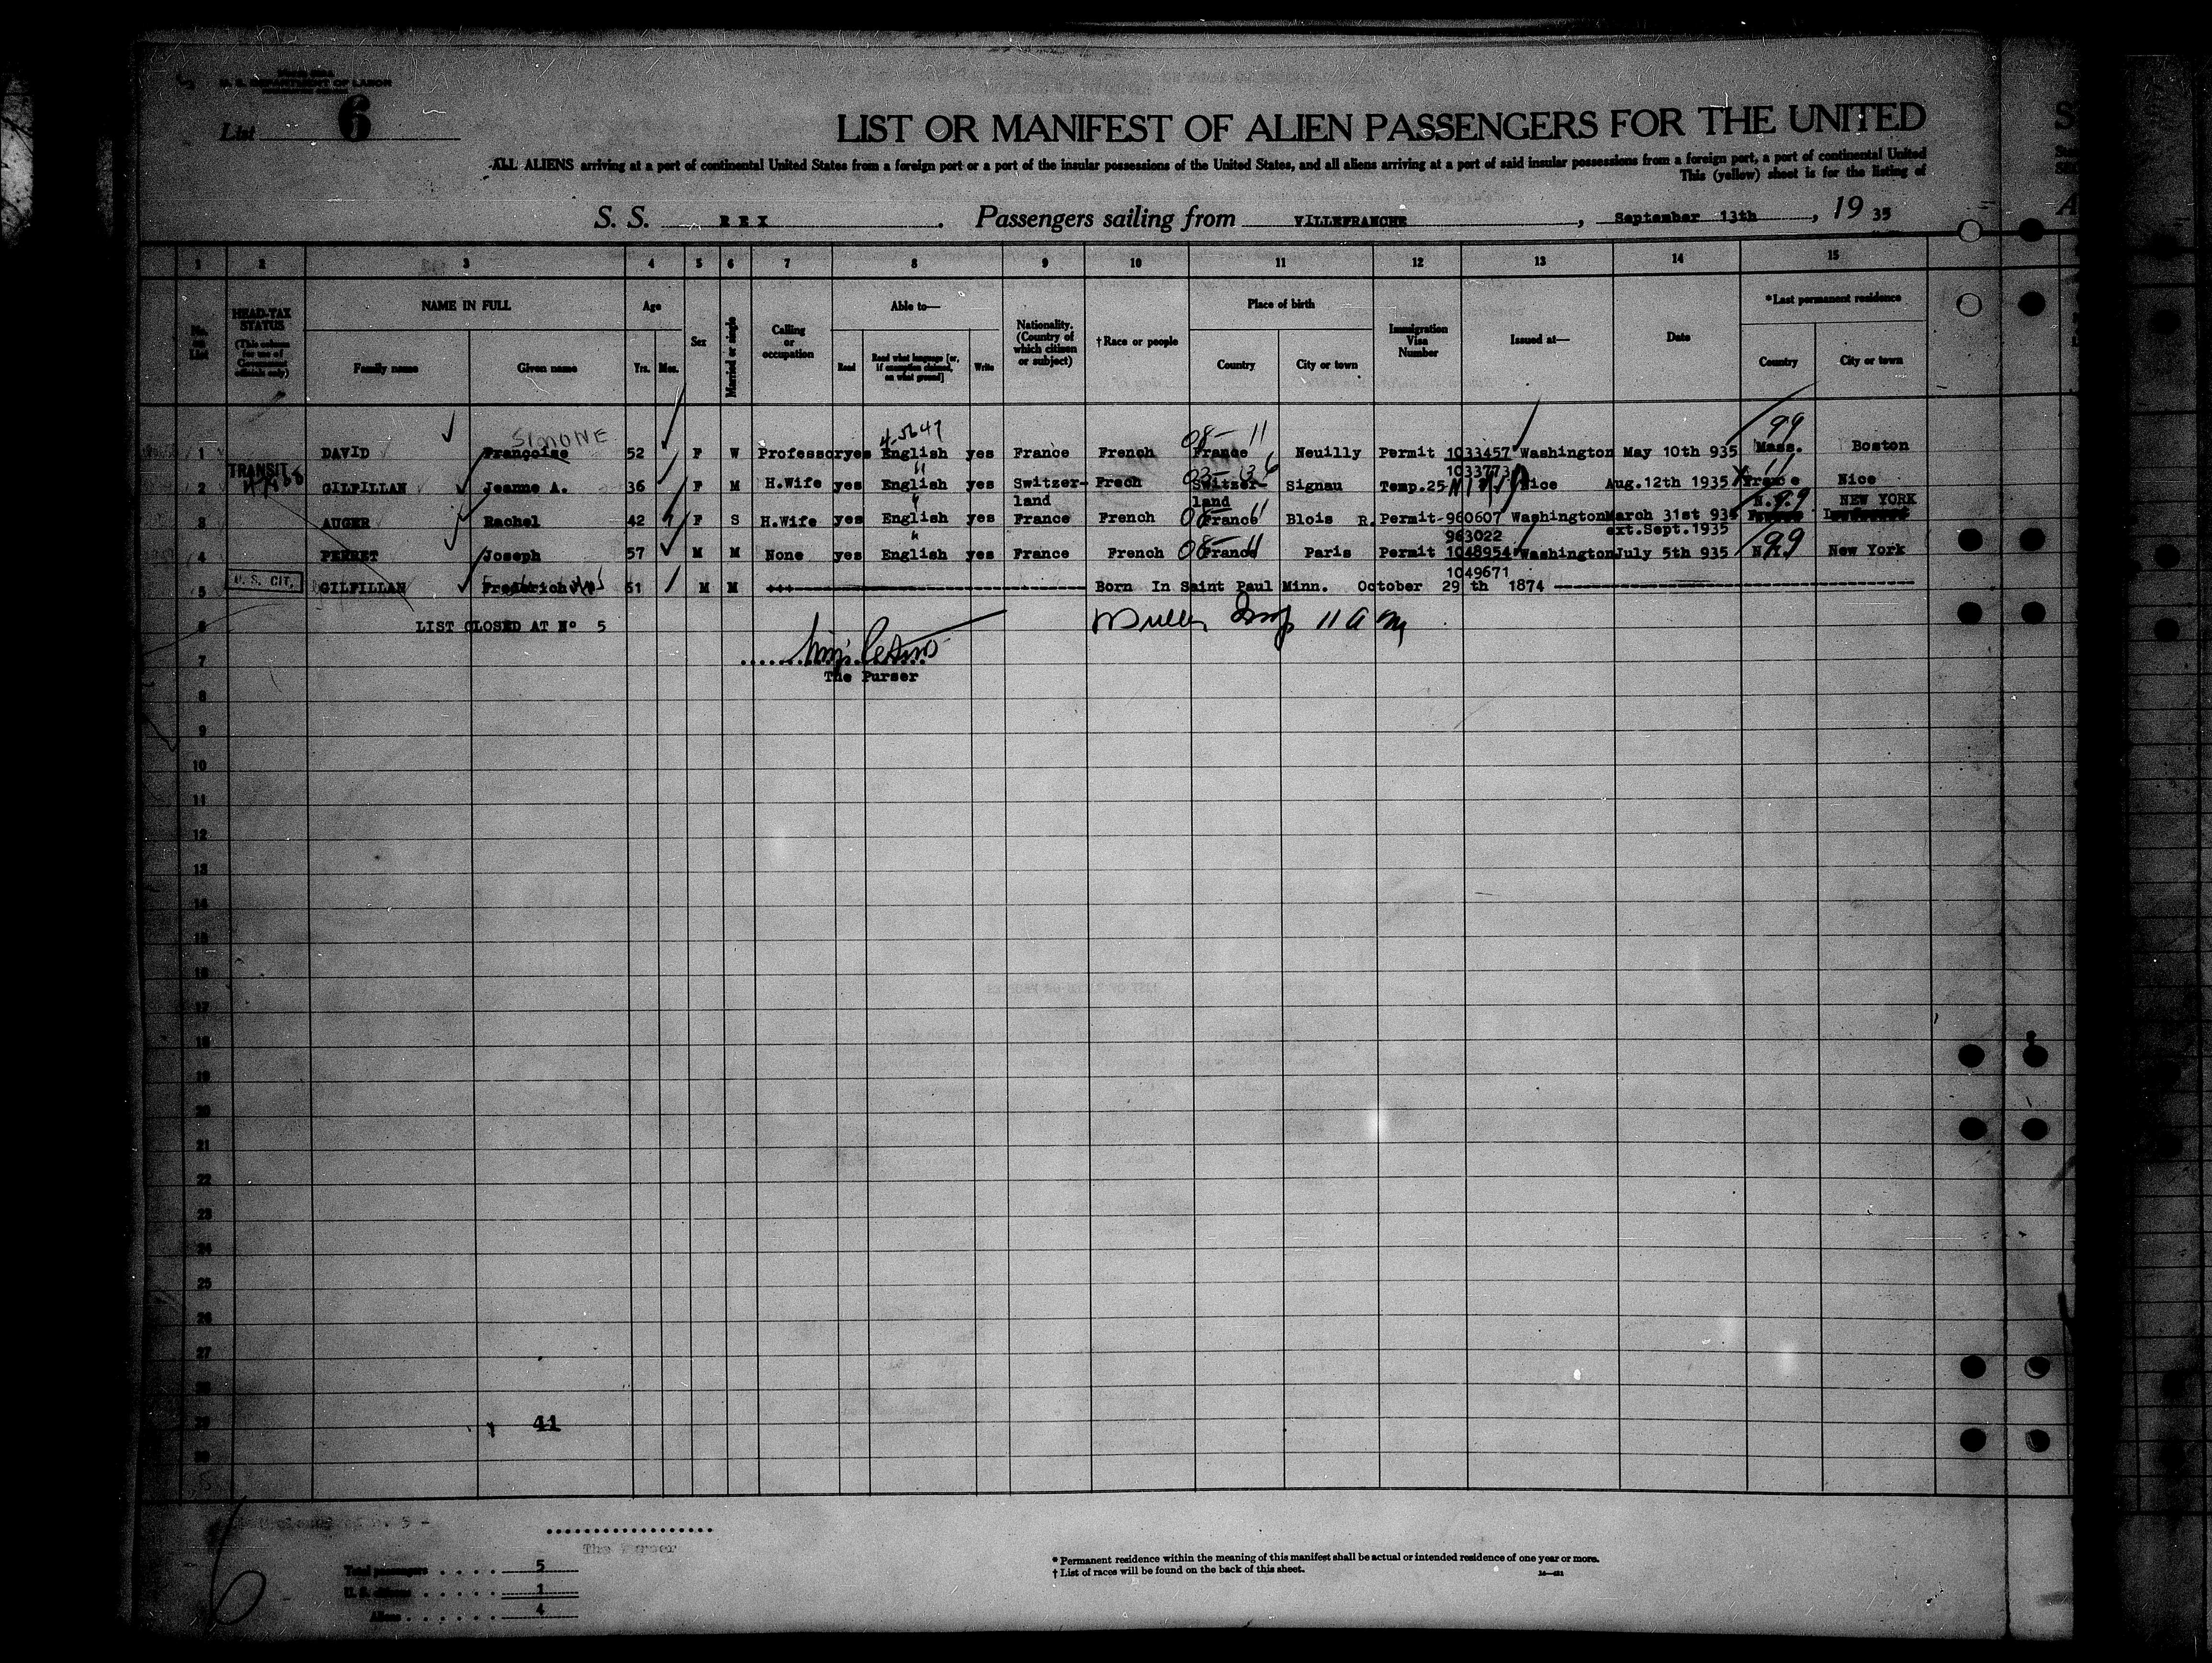 U. S. DEPARTMENT OF LABOR
List 6
LIST OR MANIFEST OF ALIEN PASSENGERS FOR THE UNITED
ALL ALIENS arriving at a port of continental United States from a foreign port or a port of the insular possessions of the United States, and all aliens arriving at a port of said insular possessions from a foreign port, a port of continental United
This (yellow) sheet is for the listing of
S. S. REX. Passengers sailing from VILLEFRANCHE, September 13th, 19 35
1 2 3 4 5 6 7 8 9 10 11 12 13 14 15
No. on List
HEAD-TAX STATUS (This column for use of Government officials only)
NAME IN FULL
Family name Given name
Age
Yrs. Mos.
Sex
Married or single
Calling or occupation
Able to—
Read Read what language [or, if exemption claimed, on what ground] Write
Nationality. (Country of which citizen or subject)
† Race or people
Place of birth
Country City or town
Immigration Visa Number
Issued at—
Date
* Last permanent residence
Country City or town
SIMONE 4-5647 08- 11 99
1 DAVID Françoise 52 F W Professor yes English yes France French France Neuilly Permit 1033457 Washington May 10th 935 Mass. Boston
1033773
TRANSIT
2 GILFILLAN Jeanne A. 36 F M H.Wife yes English yes Switzer- Frech Switzer- Signau Temp.25 Nice Aug.12th 1935 France Nice
land land N.Y. 99 NEW YORK
3 AUGER Rachel 42 F S H.Wife yes English yes France French 08 France 11 Blois R. Permit-960607 Washington March 31st 935
963022 ext.Sept.1935
4 PERRET Joseph 57 M M None yes English yes France French 08- France 11 Paris Permit 1048954 Washington July 5th 935 N.Y. 99 New York
1049671
U. S. CIT.
5 GILFILLAN Frederich 61 M M Born In Saint Paul Minn. October 29 th 1874
6 LIST CLOSED AT Nº 5
Insp 11 a m
7
The Purser
8
9
10
11
12
13
14
15
16
17
18
19
20
21
22
23
24
25
26
27
28
29 41
30
The Purser
Total passengers . . . . 5
U. S. citizens . . . . . 1
Aliens . . . . . . 4
* Permanent residence within the meaning of this manifest shall be actual or intended residence of one year or more.
† List of races will be found on the back of this sheet.